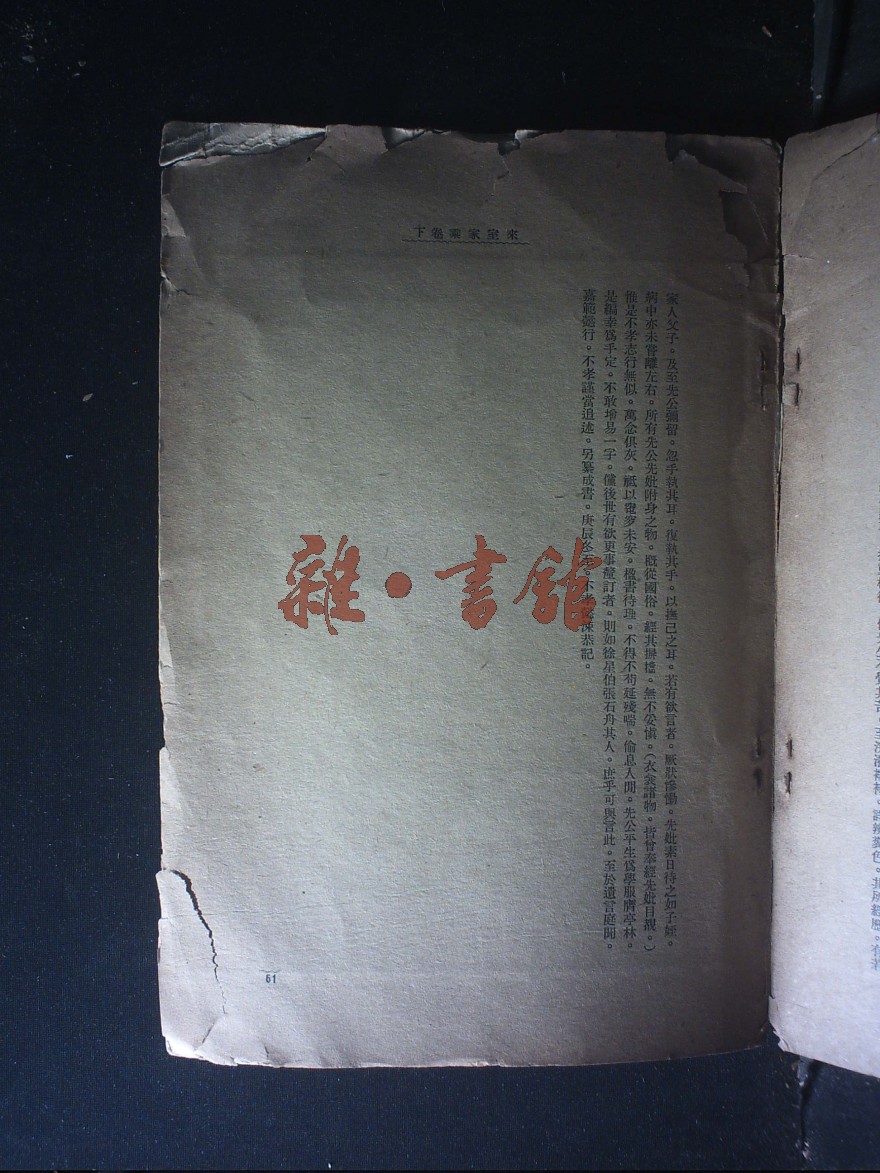 來室家乘卷下
家人父子。及至先公彌留。忽手執其耳。復執其手。以撫己之耳。若有欲言者。厥狀慘慟。先妣素日待之如子姪。
病中亦未嘗離左右。所有先公先妣附身之物。概從國俗。經其摒擋。無不妥慎。（衣衾諸物。皆曾奉經先妣目覩。）
惟是不孝志行無似。萬念俱灰。祗以窀穸未安。楹書待理。不得不苟延殘喘。偷息人間。先公平生爲學服膺亭林。
是編幸爲手定。不敢增易一字。儻後世有欲更事釐訂者。則如徐星伯張石舟其人。庶乎可與言此。至於遺言庭聞。
嘉範懿行。不孝謹當追述。另纂成書。庚辰冬 不孝 恭記。
雜·書館
61